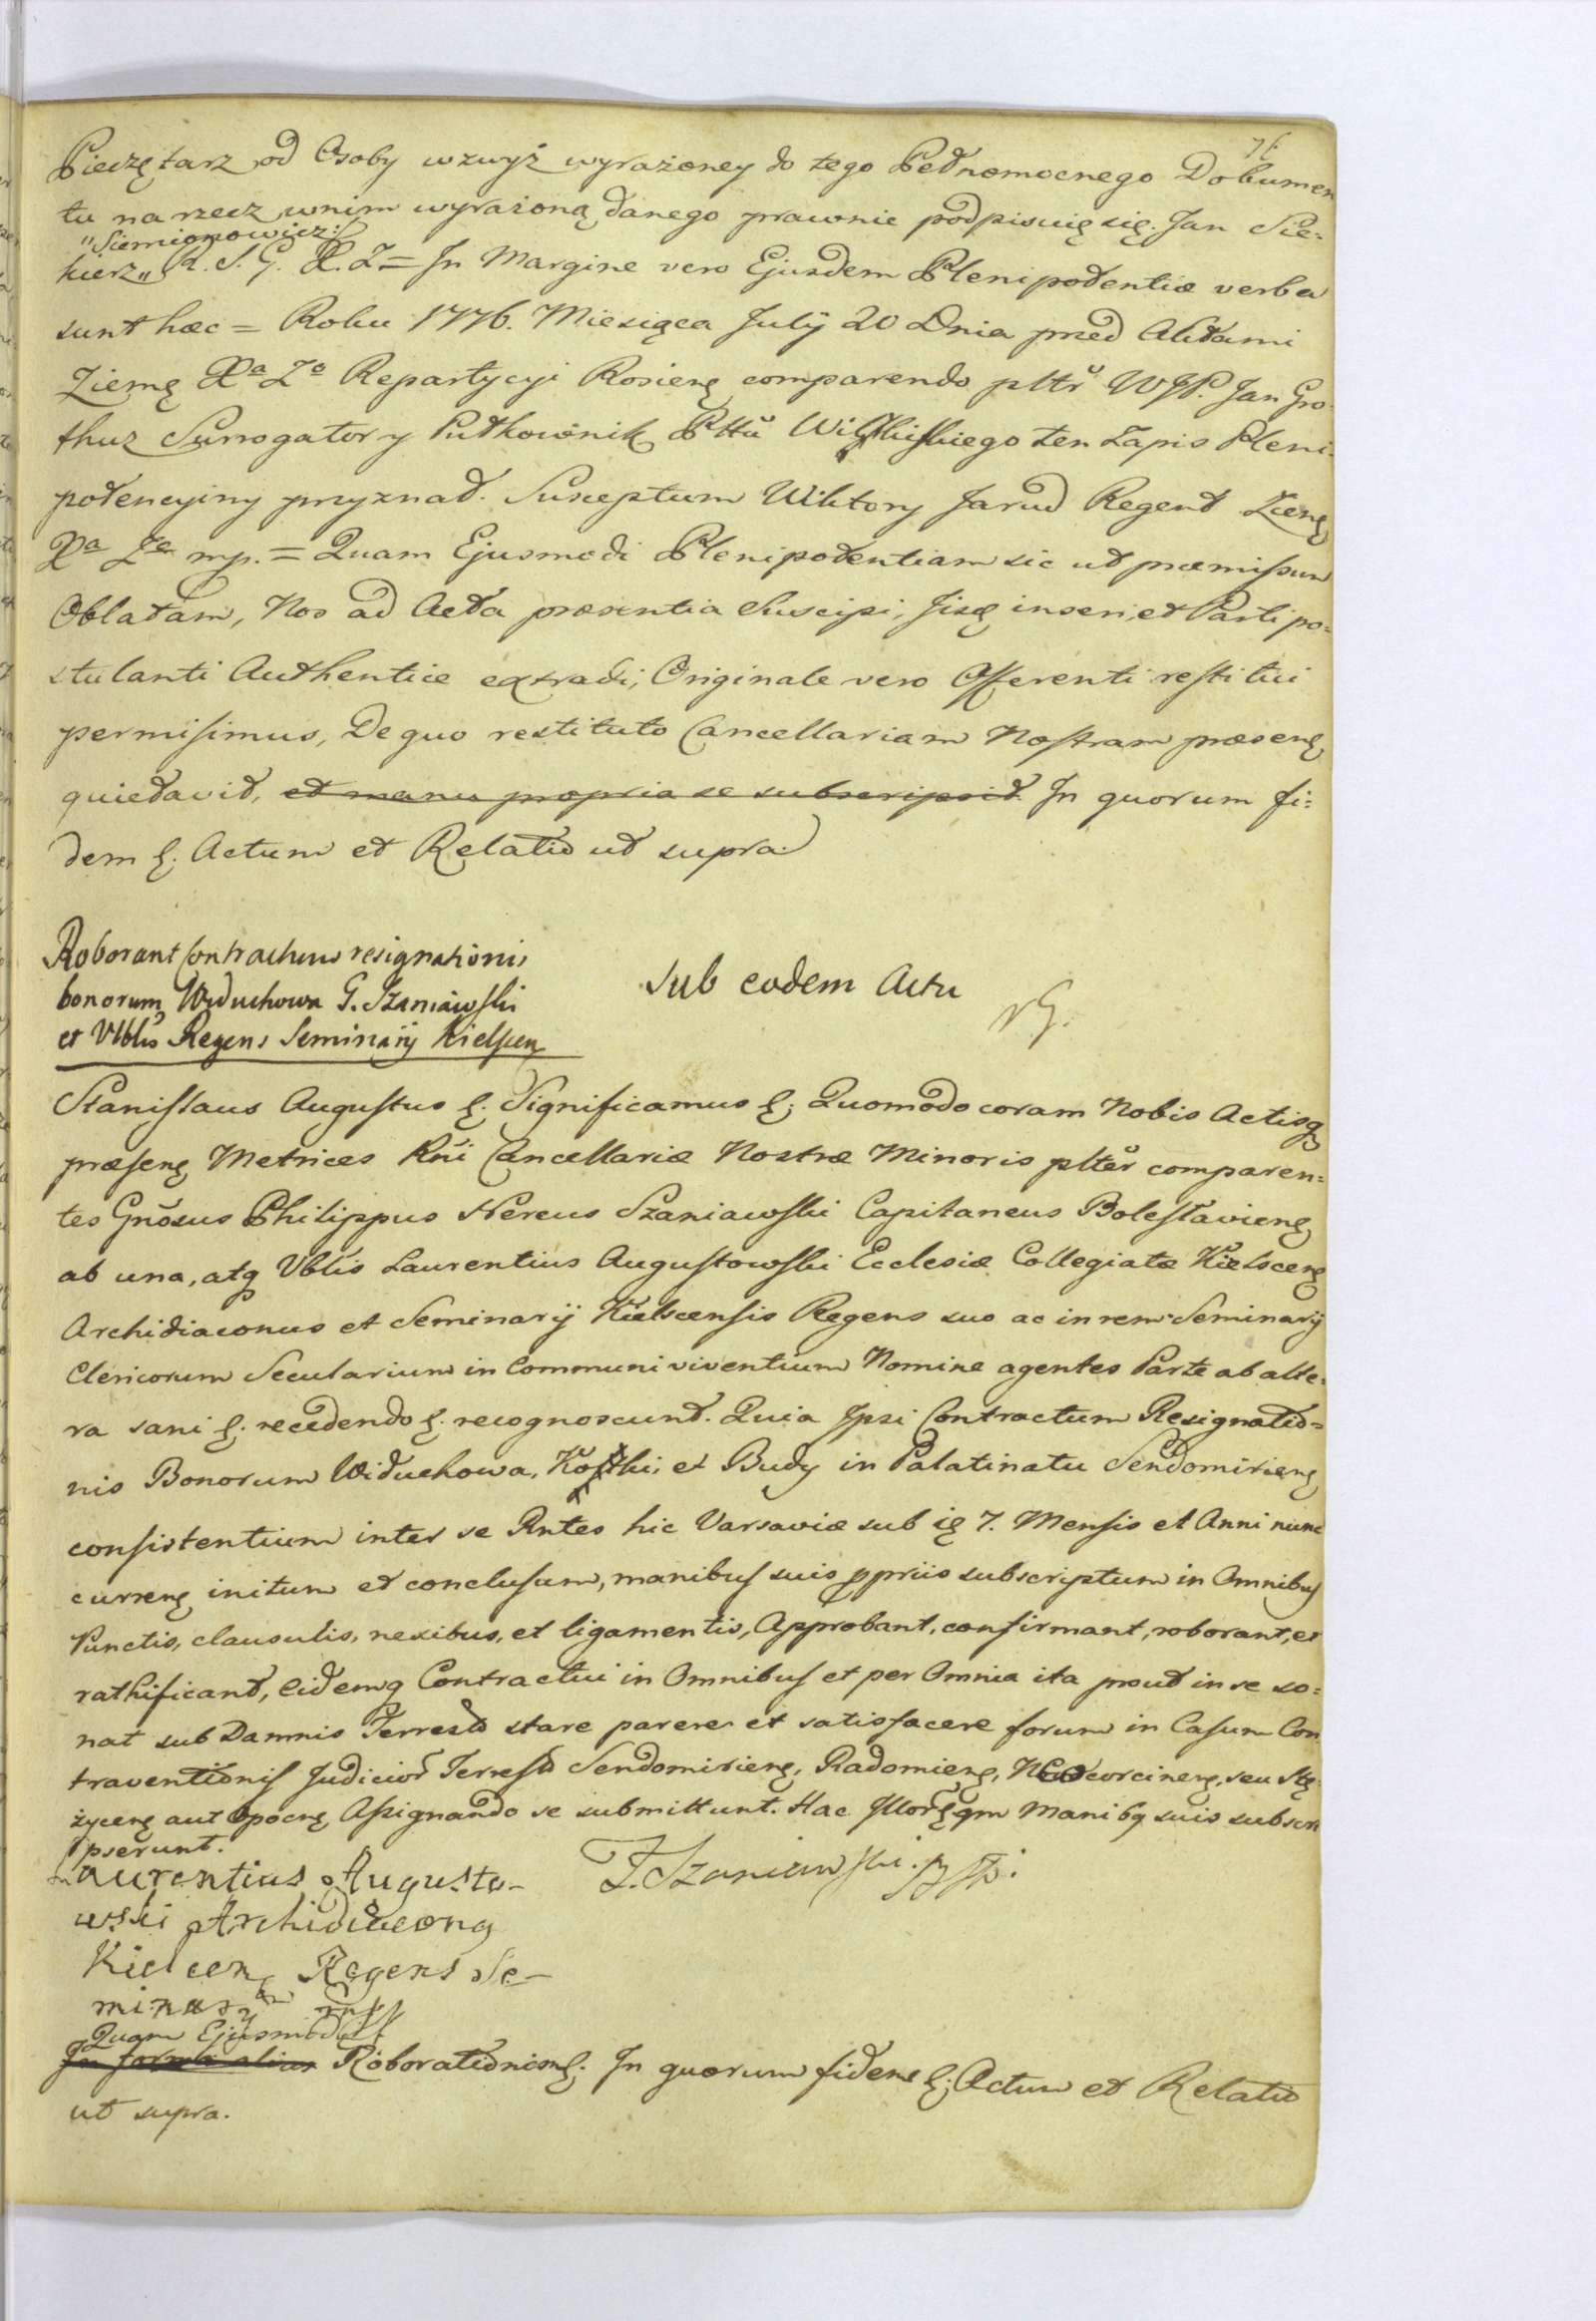 Pieczętarz od Osoby wzwyż wyrażoney do tego Pełnomocnego Dokumen
tu na rzecz wnim wyrażoną danego prawnie podpisuię się. Jan Sie=
"Siemionowicz
kierz„ R. S. G. X. Z = In Margine vero Ejusdem Plenipotentiæ verba
sunt hæc = Roku 1776. Miesiąca July 20 Dnia przed Aktami
Ziemę Xa Zo Repartycyi Rosienę comparendo plttr WJP. Jan Gro
thuz Surrogator y Pułkownik Pttu Wiłkiskiego ten Zapis Pleni=
potencyiny przyznał. Susceptum Wiktory Jarud Regent Ziemę
Xa Zo mp. = Quam Ejusmodi Plenipotentiam sic ut præmissum
Oblatam, Nos ad Acta præsentia Suscipi, Jisq inseri, et Parti po=
stulanti Authentice extradi, Originale vero Offerenti restitui
permisimus, De quo restituto Cancellariam Nostram præsenę
quietavit, et manu propria se subscripsit. In quorum fi=
dem ę. Actum et Relatio ut supra

Roborant Contractum resignationis
bonorum Widuchowa G. Szaniawski
et Vblis Regens Seminarij Kielsen
Sub eodem Actu
Stanislaus Augustus ę. Significamus ę. Quomodo coram Nobis Actisq
præsenę Metrices Rni Cancellariæ Nostræ Minoris plter comparen=
tes Gnosus Philippus Nereus Szaniawski Capitaneus Boleslavienę
ab una, atq Vblis Laurentius Augustowski Ecclesiæ Collegiatæ Kielscenę
Archidiaconus et Seminarij Kielscensis Regens suo ac in rem Seminarij
Clericorum Secularium in Communi viventium Nomine agentes Parte ab alte=
ra sani ę. recedendo ę. recognoscunt. Quia Ipsi Contractum Resignatio=
nis Bonorum Widuchowa, Kostki, et Budy in Palatinatu Sendomirienę
consistentium inter se Rntes hic Varsaviæ sub ię 7. Mensis et Anni nunc
currenę initum et conclusum, manibus suis ppriis subscriptum in Omnibus
Punctis, clausulis, nexibus, et ligamentis, Approbant, confirmant, roborant, et
rathificant, eidemq Contractui in Omnibus et per Omnia ita prout in se so=
nat sub Damnis Terrestr stare parere et satisfacere forum in Casum Con
traventionis Judicior Terrestr Sendomirienę, Radomienę, Neocorcinenę, seu Stę=
życenę aut Opocnę Assignando se submittunt. Hac Manibq suis subscri
pserunt.
Laurentius Augusto-
wski Archidiaconq
Kielcenę Regens Se-
minary mp
F. Szaniawski
Quam Ejusmodi
In forma alias Roborationem ę. In quorum fidem ę. Actum et Relatio
ut supra.